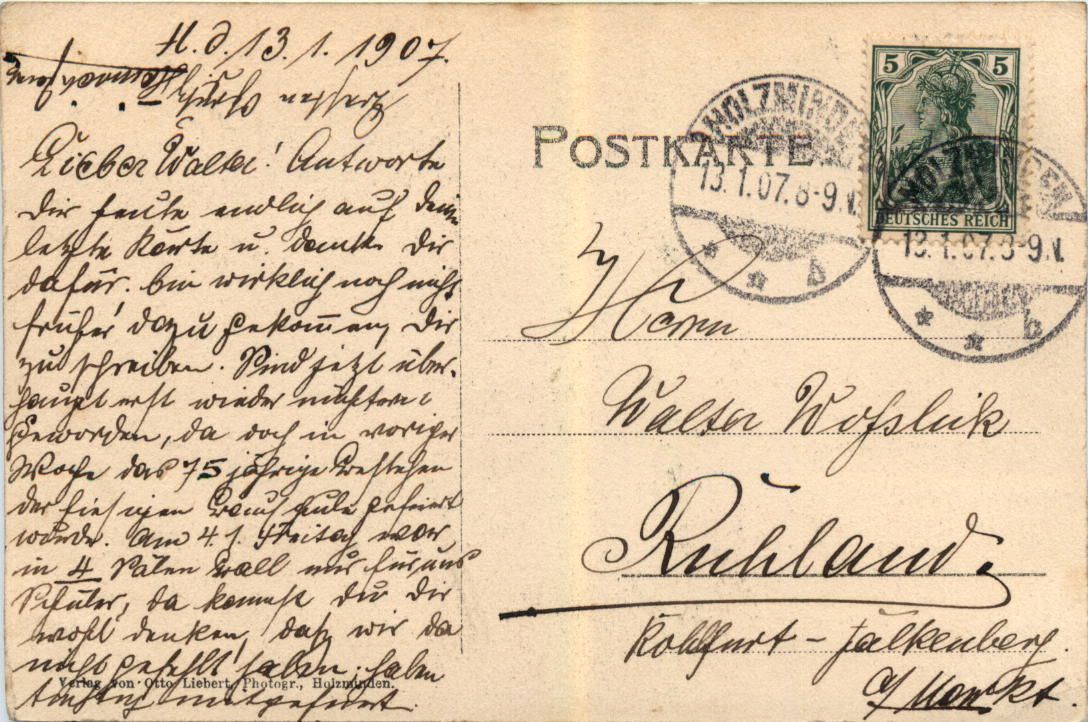 H. d. 13. 1. 1907.
Lieber Walter! Antworte
dir heute endlich auf deine
letzte Karte u. danke dir
dafür. bin wirklich noch nicht
früher dazu gekommen, dir
zu schreiben. Sind jetzt über-
haupt erst wieder nüchtern
geworden, da doch in voriger
Woche das 75 jährige Bestehen
der hiesigen Bauschule gefeiert
wurde. Am 4. 1. Freitag war
in 4 Sälen Ball nur für uns
Schüler, da kannst du dir
wohl denken, daß wir da
nicht gefehlt haben. haben
tüchtig mitgefeiert.
Verlag von Otto Liebert, Photogr., Holzminden.
POSTKARTE
HOLZMINDEN
13.1.07. 8-9 N.
* * b
5 5
DEUTSCHES REICH
HOLZMINDEN
13.1.07. 8-9 N.
* * b
Herrn
Walter
Ruhland.
Kohlfurt - Falkenberg.